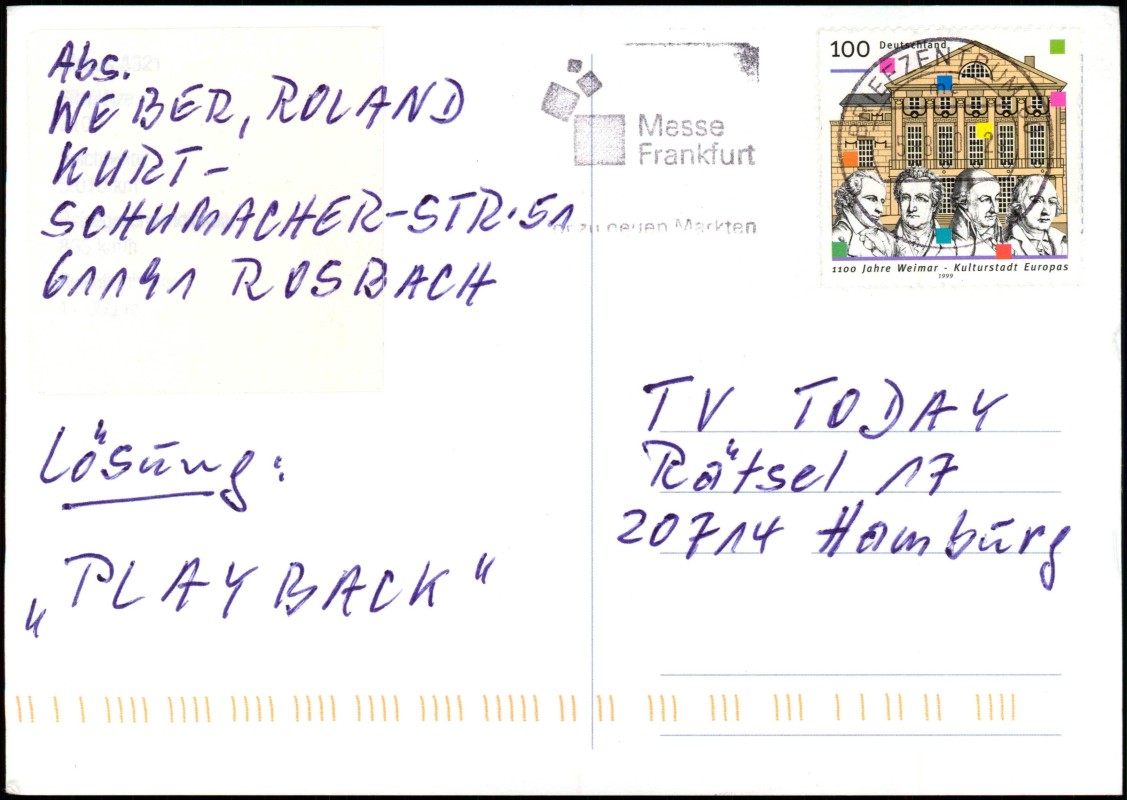 Abs.
WEBER, ROLAND
KURT-
SCHUMACHER-STR. 51
61191 ROSBACH
Lösung:
„PLAYBACK"
Messe
Frankfurt
zu neuen Märkten
100 Deutschland
1100 Jahre Weimar - Kulturstadt Europas
1999
TV TODAY
Rätsel 17
20714 Hamburg